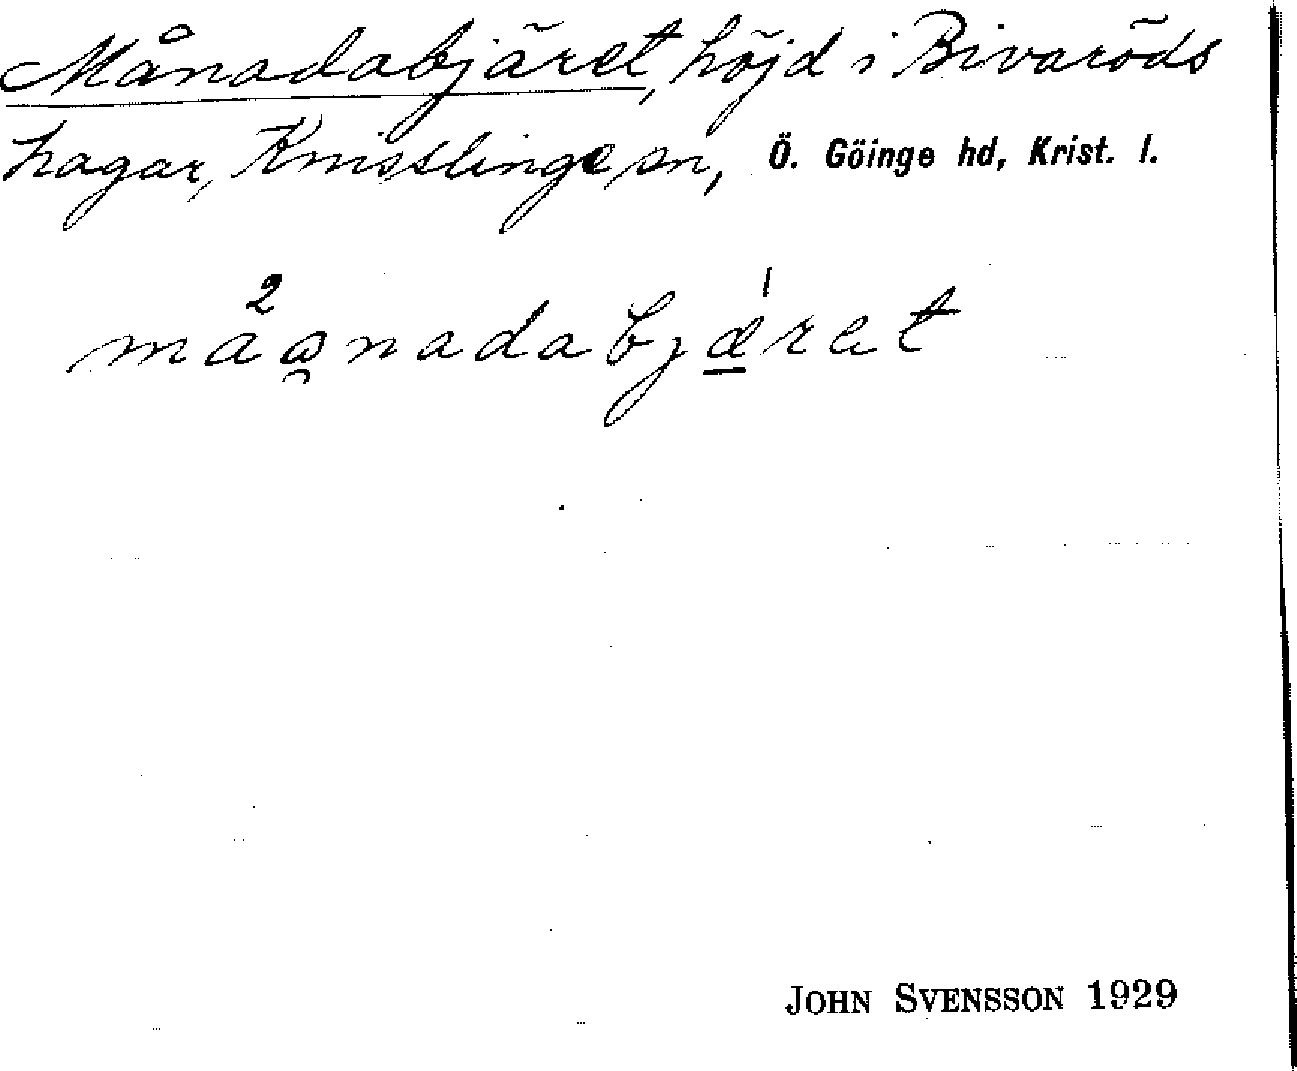 Månadabjäret, höjd i Bivaröds
hagar, Knisslinge sn, Ö. Göinge hd, Krist. l.
må²a̯nadabjǽ̲rat
JOHN SVENSSON 1929